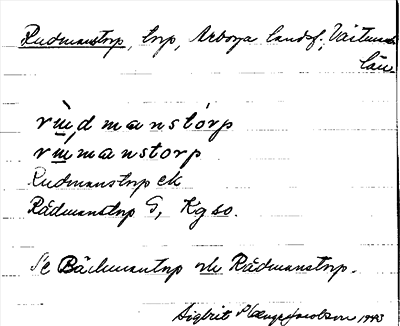 Rudmanstorp, torp, Arboga landsf., Västm.
län.
rùd manstórp
rumanstorp
Rudmanstorp ek
Rådmanstorp G, Kgso.
Se Bäckmantorp och Rådmanstorp.
Sigbrit 1943